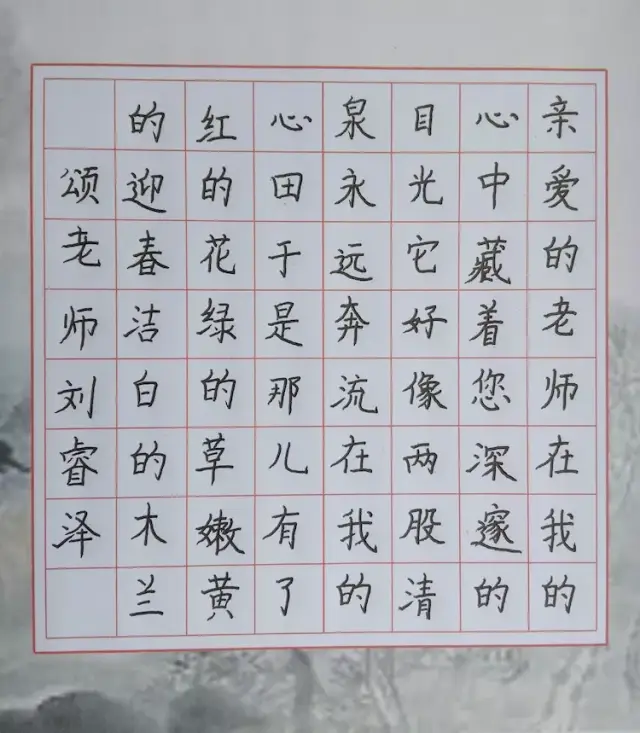 亲爱的老师在我的
心中藏着您深邃的
目光它好像两股清
泉永远奔流在我的
心田于是那儿有了
红的花绿的草嫩黄
的迎春洁白的木兰
颂老师刘睿泽